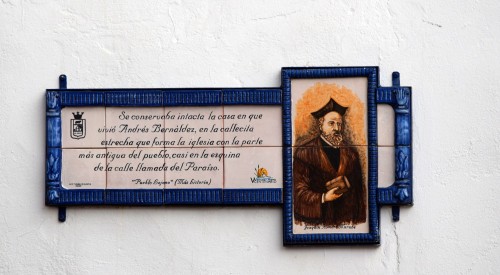 Se conservaba intacta la casa en que
vivió Andrés Bernáldez, en la callecita
estrecha que forma la iglesia con la parte
más antigua del pueblo, casi en la esquina
de la calle llamada del Paraíso.
"Pueblo Lejano" (Más historia)